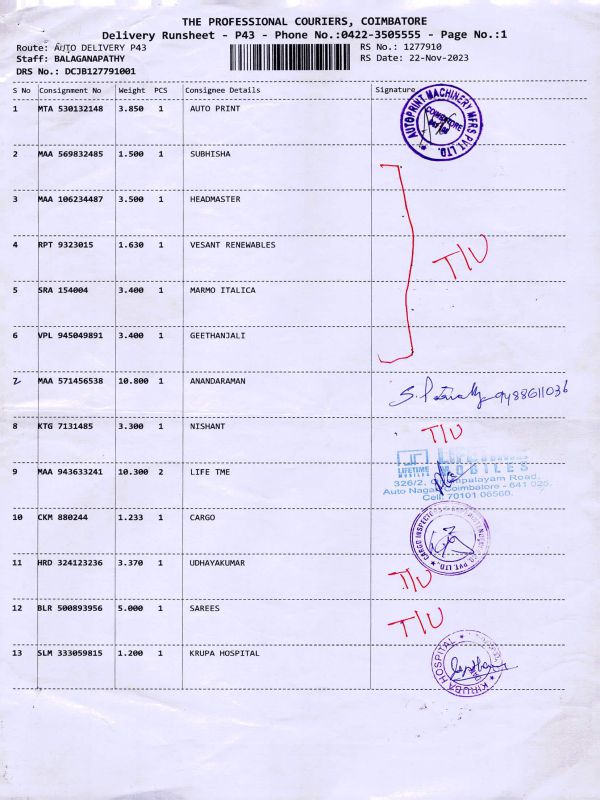 THE PROFESSIONAL COURIERS, COIMBATORE
Delivery Runsheet - P43 - Phone No.:0422-3505555 - Page No.:1
Route: AUTO DELIVERY P43 RS No.: 1277910
Staff: BALAGANAPATHY RS Date: 22-Nov-2023
DRS No.: DCJB127791001
S No Consignment No Weight PCS Consignee Details Signature
1 MTA 530132148 3.850 1 AUTO PRINT
AUTOPRINT MACHINERY MFRS PVT. LTD.
COIMBATORE
2 MAA 569832485 1.500 1 SUBHISHA
3 MAA 106234487 3.500 1 HEADMASTER
4 RPT 9323015 1.630 1 VESANT RENEWABLES T/U
5 SRA 154004 3.400 1 MARMO ITALICA
6 VPL 945049891 3.400 1 GEETHANJALI
7 MAA 571456538 10.800 1 ANANDARAMAN 9488611036
8 KTG 7131485 3.300 1 NISHANT T/U
LIFETIME
MOBILES
9 MAA 943633241 10.300 2 LIFE TME
LIFETIME
MOBILES
326/2, Road,
Auto Nagar, Coimbatore - 641 025.
Cell: 70101 06560.
10 CKM 880244 1.233 1 CARGO
CARGO INSPECTORS PVT. LTD.
11 HRD 324123236 3.370 1 UDHAYAKUMAR T/U
12 BLR 500893956 5.000 1 SAREES T/U
13 SLM 333059815 1.200 1 KRUPA HOSPITAL
KIRUBA HOSPITAL